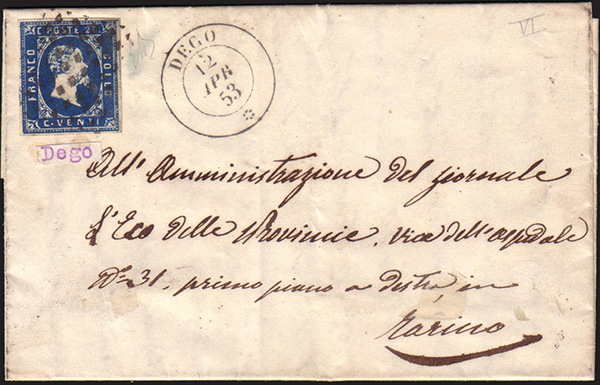 C. POSTE 20
FRANCO
BOLLO
C. VENTI
DEGO
12
APR
53
VI
Dego
All' Amministrazione del giornale
L'Eco delle Provincie, via dell'ospedale
N° 31, primo piano a destra, in
Torino